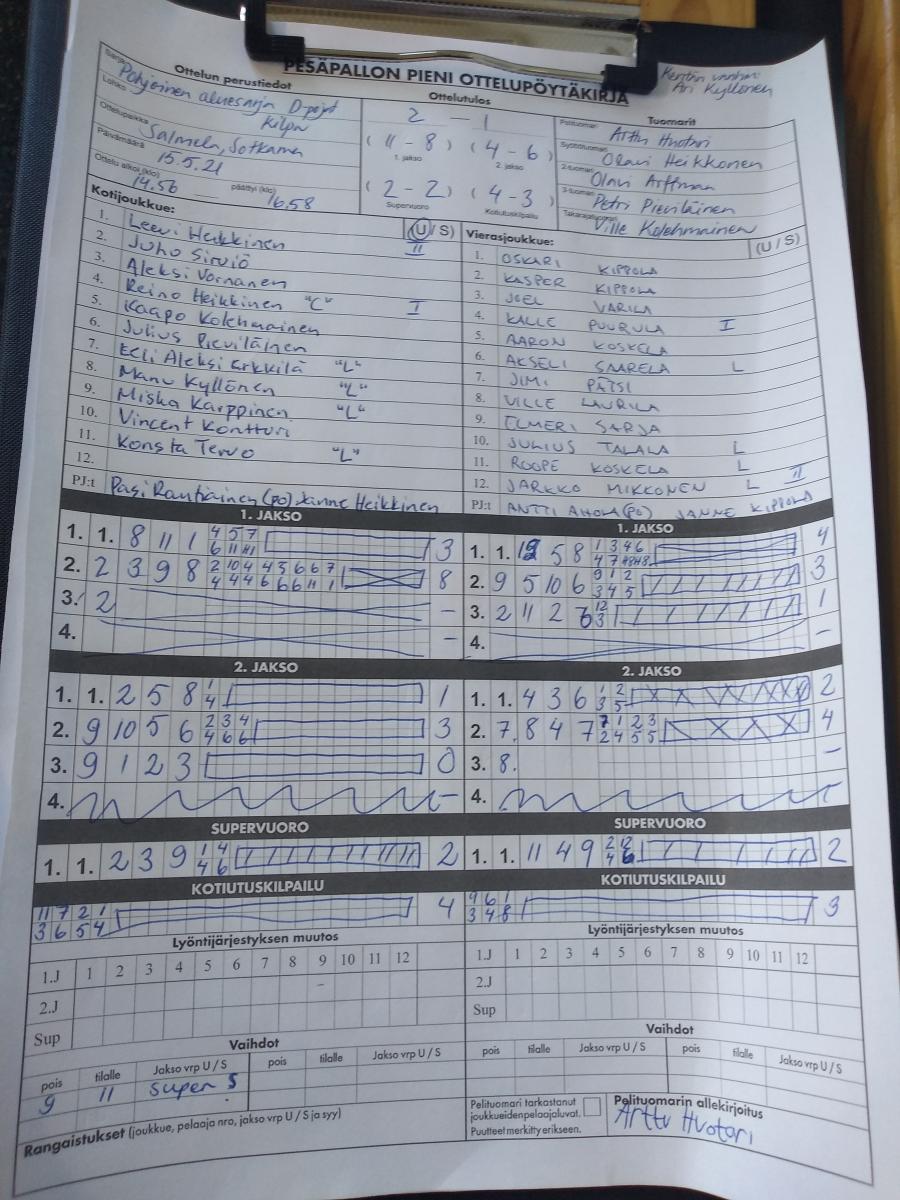 PESÄPALLON PIENI OTTELUPÖYTÄKIRJA
Kentän vanhin:
Ari Kyllönen
Ottelun perustiedot
Sarja
Pohjoinen aluesarja D-pojat
Lohko
Kilpa
Ottelupaikka
Salmela, Sotkamo
Päivämäärä
15.5.21
Ottelu alkoi (klo) 14.56 päättyi (klo) 16.58
Ottelutulos
2 — 1
(11 - 8) (4 - 6)
1. jakso 2. jakso
(2 - 2) (4 - 3)
Supervuoro Kotiutuskilpailu
Tuomarit
Pelituomari Arttu Huotari
Syöttötuomari Olavi Heikkonen
2-tuomari Olavi Arffman
3-tuomari Petri Pieviläinen
Takarajatuomari Ville Kolehmainen
Kotijoukkue: (U / S)
1. Leevi Heikkinen II
2. Juho Sirviö
3. Aleksi Vornanen
4. Reino Heikkinen "C" I
5. Kaapo Kolehmainen
6. Julius Pieviläinen
7. Eeli Aleksi Erkkilä "L"
8. Manu Kyllönen "L"
9. Miska Karppinen "L"
10. Vincent Kontturi
11. Konsta Tervo "L"
12.
PJ:t Pasi Rautiainen (po) Janne Heikkinen
Vierasjoukkue: (U / S)
1. OSKARI KIPPOLA
2. KASPER KIPPOLA
3. JOEL VARILA
4. KALLE PUURULA I
5. AARON KOSKELA
6. AKSELI SAARELA L
7. JIMI PÄTSI
8. VILLE LAURILA
9. ELMERI SARJA
10. JULIUS TALALA L
11. ROOPE KOSKELA L
12. JARKKO MIKKONEN L II
PJ:t ANTTI AHOLA (PO) JANNE KIPPOLA
1. JAKSO
1. 1. 8 11 1 4 5 7 3
6 11
2. 2 3 9 8 2 10 4 4 5 6 6 7 8
4 4 4 6 6 6 11 1
3. 2 –
4. –
1. JAKSO
1. 1. 5 8 1 3 4 6 4
4 7
2. 9 5 10 6 9 1 2 3
3 4 5
3. 2 11 2 6 12 1
3
4. –
2. JAKSO
1. 1. 2 5 8 1 1
4
2. 9 10 5 6 2 3 4 3
4 6 6
3. 9 1 2 3 0
4. –
2. JAKSO
1. 1. 4 3 6 1 2 2
3 5
2. 7. 8 4 7 7 1 2 3 4
2 4 5 5
3. 8. –
4. –
SUPERVUORO
1. 1. 2 3 9 1 4 2
4 6
SUPERVUORO
1. 1. 11 4 9 2 12 2
4 6
KOTIUTUSKILPAILU
11 7 2 1 4
3 6 5 4
KOTIUTUSKILPAILU
9 6 1 3
3 4 8
Lyöntijärjestyksen muutos
1.J 1 2 3 4 5 6 7 8 9 10 11 12
2.J
Sup
Lyöntijärjestyksen muutos
1.J 1 2 3 4 5 6 7 8 9 10 11 12
2.J
Sup
Vaihdot
pois tilalle Jakso vrp U / S pois tilalle Jakso vrp U / S
9 11 super S
Vaihdot
pois tilalle Jakso vrp U / S pois tilalle Jakso vrp U / S
Rangaistukset (joukkue, pelaaja nro, jakso vrp U / S ja syy)
Pelituomari tarkastanut
joukkueidenpelaajaluvat.
Puutteet merkitty erikseen.
Pelituomarin allekirjoitus
Arttu Huotari